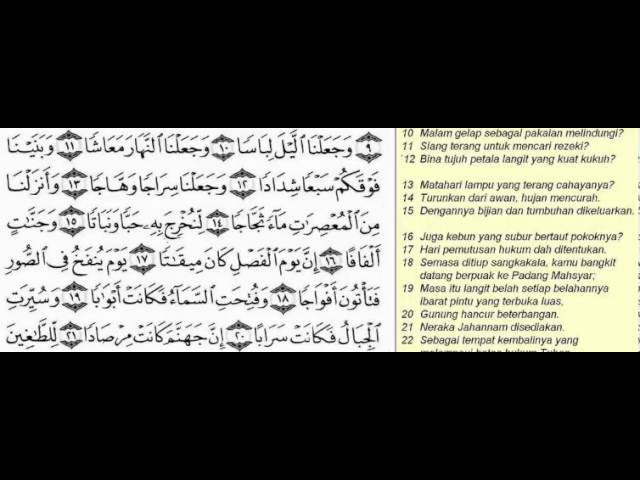 ﴿٩﴾ وَجَعَلْنَا ٱلَّيْلَ لِبَاسًا ﴿١٠﴾ وَجَعَلْنَا ٱلنَّهَارَ مَعَاشًا ﴿١١﴾ وَبَنَيْنَا
فَوْقَكُمْ سَبْعًا شِدَادًا ﴿١٢﴾ وَجَعَلْنَا سِرَاجًا وَهَّاجًا ﴿١٣﴾ وَأَنزَلْنَا
مِنَ ٱلْمُعْصِرَٰتِ مَآءً ثَجَّاجًا ﴿١٤﴾ لِّنُخْرِجَ بِهِۦ حَبًّا وَنَبَاتًا ﴿١٥﴾ وَجَنَّٰتٍ
أَلْفَافًا ﴿١٦﴾ إِنَّ يَوْمَ ٱلْفَصْلِ كَانَ مِيقَٰتًا ﴿١٧﴾ يَوْمَ يُنفَخُ فِى ٱلصُّورِ
فَتَأْتُونَ أَفْوَاجًا ﴿١٨﴾ وَفُتِحَتِ ٱلسَّمَآءُ فَكَانَتْ أَبْوَٰبًا ﴿١٩﴾ وَسُيِّرَتِ
ٱلْجِبَالُ فَكَانَتْ سَرَابًا ﴿٢٠﴾ إِنَّ جَهَنَّمَ كَانَتْ مِرْصَادًا ﴿٢١﴾ لِّلطَّٰغِينَ
10 Malam gelap sebagai pakaian melindungi?
11 Siang terang untuk mencari rezeki?
12 Bina tujuh petala langit yang kuat kukuh?
13 Matahari lampu yang terang cahayanya?
14 Turunkan dari awan, hujan mencurah.
15 Dengannya bijian dan tumbuhan dikeluarkan.
16 Juga kebun yang subur bertaut pokoknya?
17 Hari pemutusan hukum dah ditentukan.
18 Semasa ditiup sangkakala, kamu bangkit
datang berpuak ke Padang Mahsyar;
19 Masa itu langit belah setiap belahannya
ibarat pintu yang terbuka luas,
20 Gunung hancur beterbangan.
21 Neraka Jahannam disediakan.
22 Sebagai tempat kembalinya yang